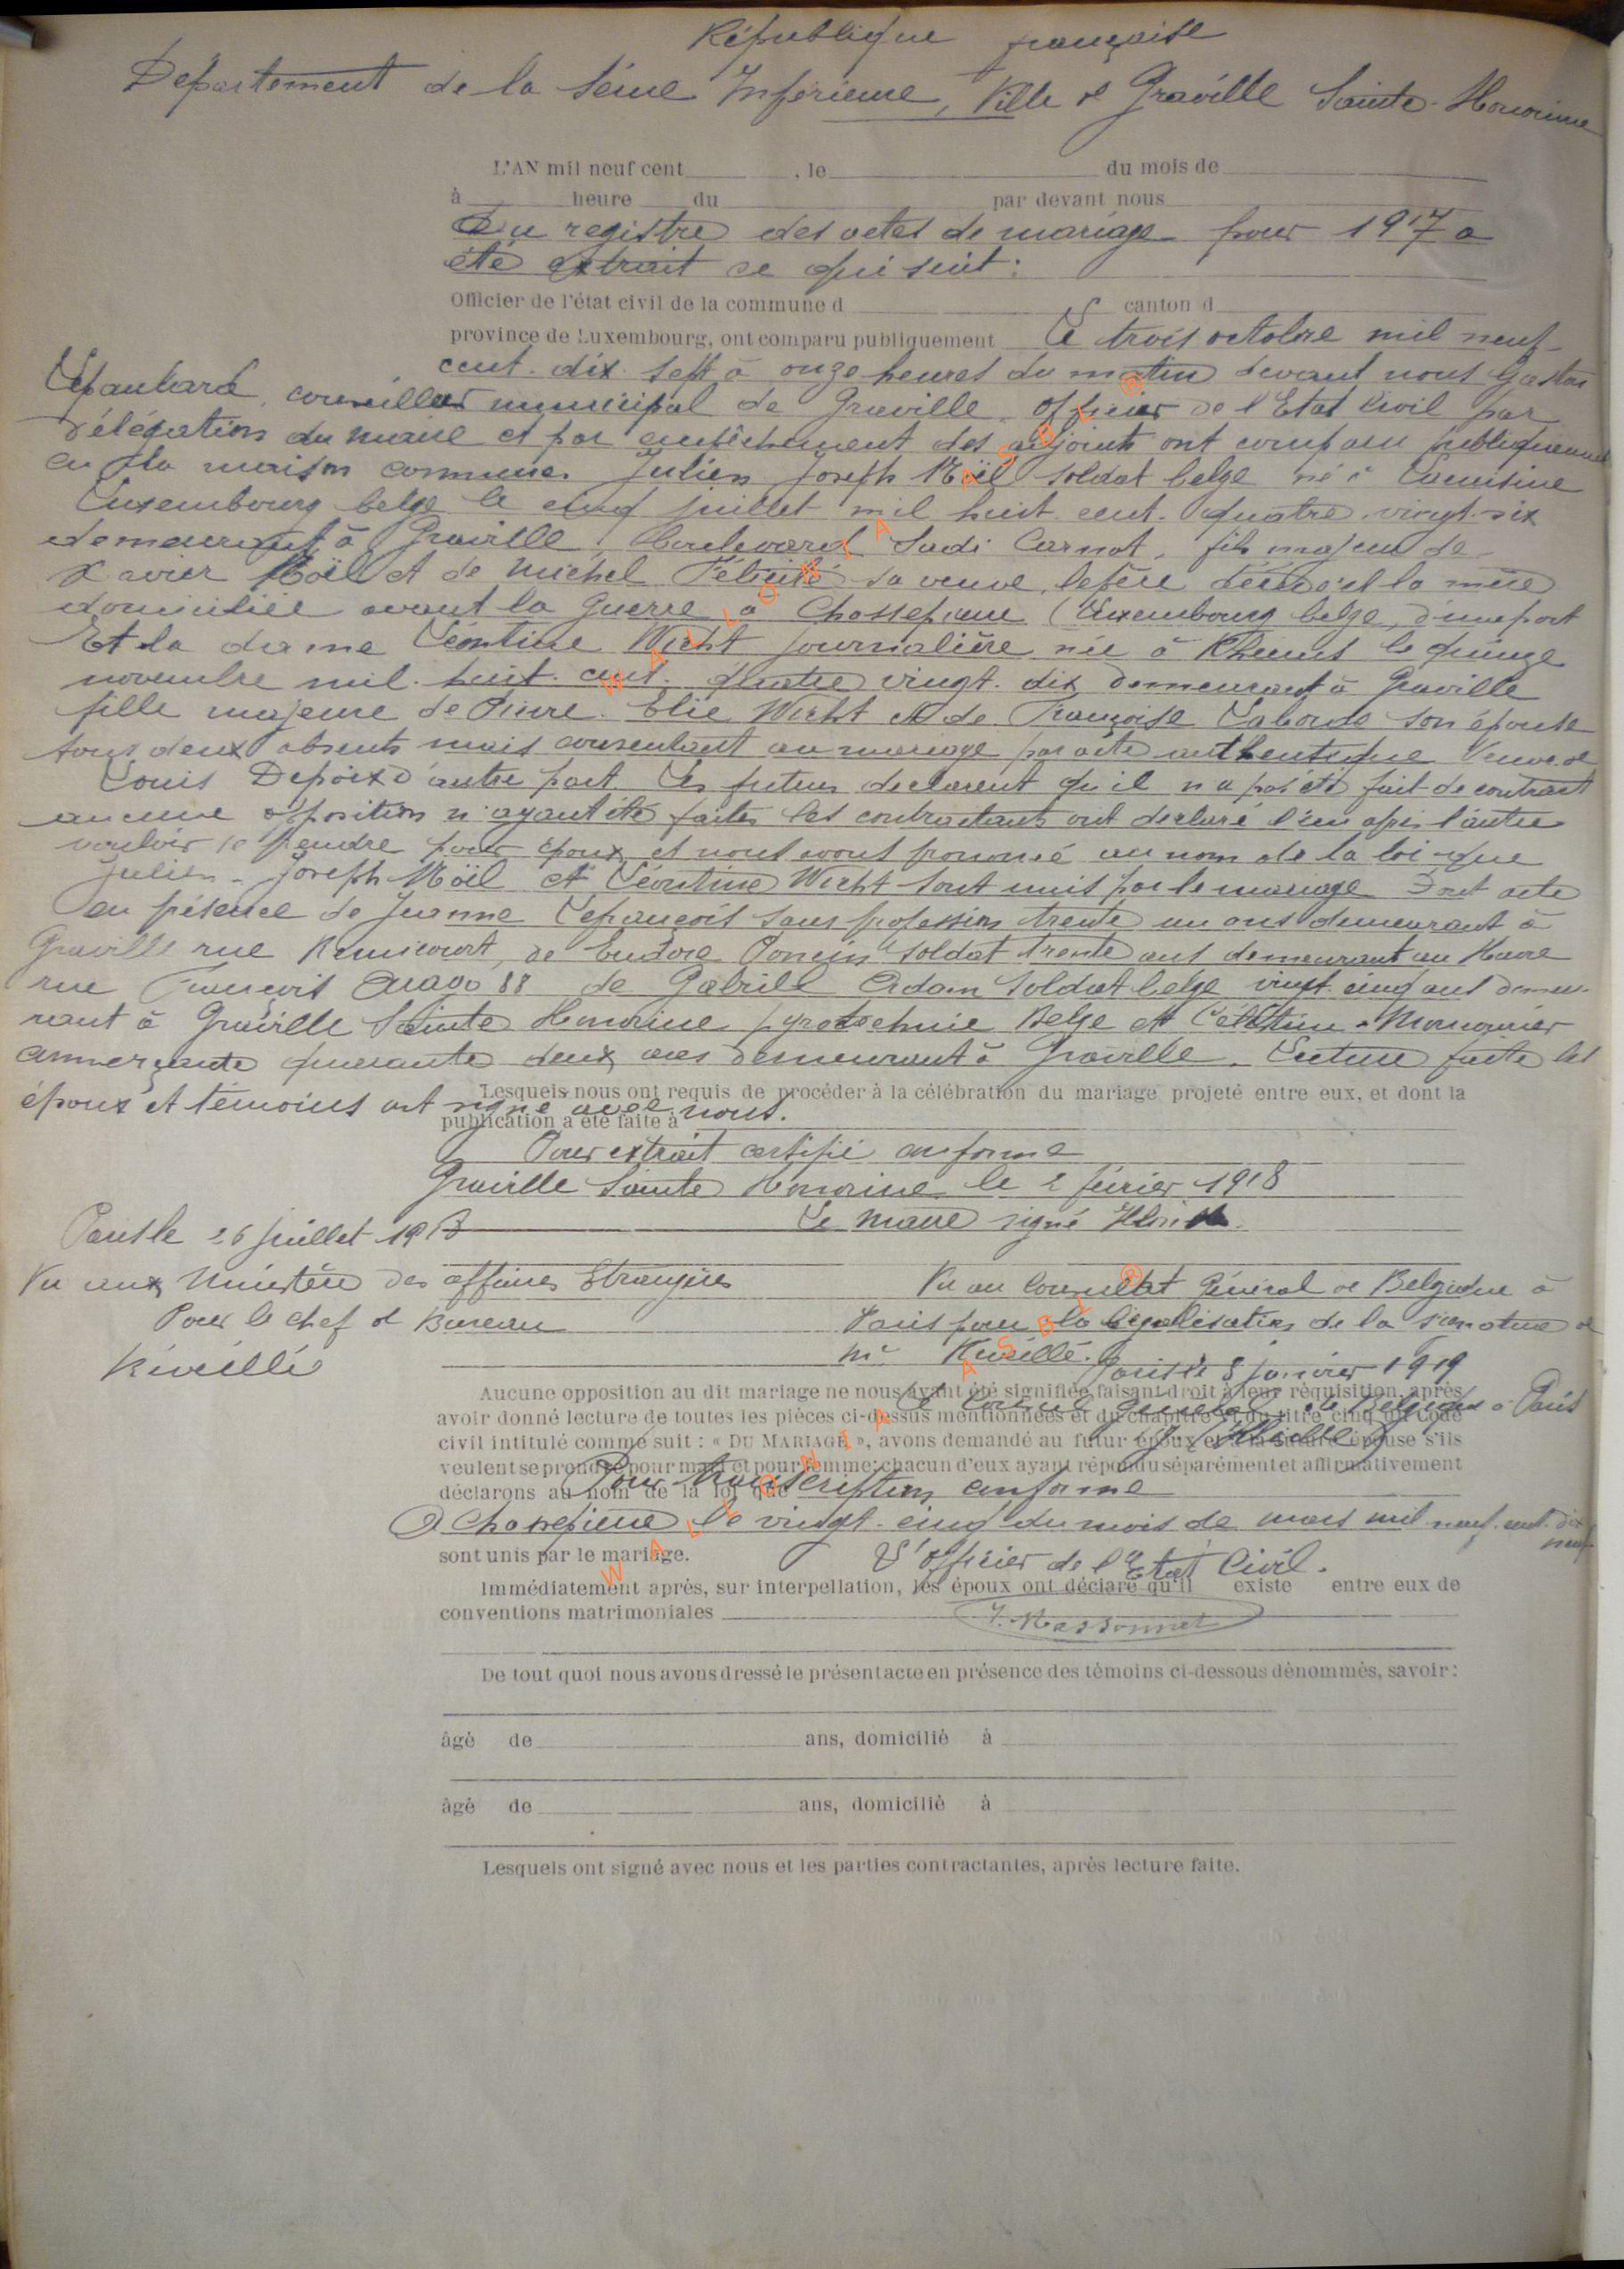 République française
Département de la Seine Inférieure, Ville de Graville Sainte-Honorine
L'AN mil neuf cent , le du mois de
à heure du par devant nous
Du registre des actes de mariage pour 1917 a
été extrait ce qui suit :
Officier de l'état civil de la commune d canton d
province de Luxembourg, ont comparu publiquement Le trois octobre mil neuf
cent dix sept à onze heures du matin devant nous Gaston
conseiller municipal de Graville officier de l'Etat Civil par
délégation du maire et par empêchement des adjoints ont comparu publiquement
en la maison commune. Julien Joseph Noël soldat belge né à Lacuisine
Luxembourg belge le cinq juillet mil huit cent quatre vingt six
demeurant à Graville, Boulevard Sadi Carnot, fils majeur de
Xavier Noël et de Michel Félicité sa veuve, le père décédé et la mère
domiciliée avant la guerre à Chassepierre (Luxembourg belge, d'une part
Et la dame Léontine Wicht journalière née à Rheims le quinze
novembre mil huit cent quatre vingt dix demeurant à Graville
fille majeure de Pierre Elie Wicht et de Françoise Laborde son épouse
tous deux absents mais consentant au mariage par acte authentique Veuve de
Louis Depoix d'autre part Les futurs déclarent qu'il n'a pas été fait de contrat
aucune opposition n'ayant été faites les contractants ont déclaré l'un après l'autre
vouloir se prendre pour époux et nous avons prononcé au nom de la loi que
Julien-Joseph Noël et Léontine Wicht sont unis par le mariage Dont acte
en présence de Jeanne Lefrançois sans profession trente un ans demeurant à
Graville rue de Eudore Poncin soldat trente ans demeurant au Havre
rue François Arago 88 de Gabriel Adam soldat belge vingt cinq ans demeu-
rant à Graville Sainte Honorine pyrotechnie Belge et Célestine
commerçante quarante deux ans demeurant à Graville. Lecture faite les
Lesquels nous ont requis de procéder à la célébration du mariage projeté entre eux, et dont la
époux et témoins ont signé avec nous.
publication a été faite à
Pour extrait certifié conforme
Graville Sainte Honorine le 2 février 1918
Le Maire signé
Paris le 26 juillet 1918
Vu aux Ministère des affaires Etrangères
Pour le chef de Bureau
Réveillé
Vu au Consulat Général de Belgique à
Paris pour la légalisation de la signature de
Mr Réveillé.
Paris le 8 janvier 1919
Aucune opposition au dit mariage ne nous ayant été signifiée, faisant droit à leur réquisition, après
Le Consul Général de Belgique à Paris
avoir donné lecture de toutes les pièces ci-dessus mentionnées et du chapitre VI du titre cinq du Code
civil intitulé comme suit : « DU MARIAGE », avons demandé au futur époux et à la future épouse s'ils
veulent se prendre pour mari et pour femme; chacun d'eux ayant répondu séparément et affirmativement
déclarons au nom de la loi que
Pour transcription conforme
à Chassepierre le vingt-cinq du mois de mars mil neuf cent dix
neuf
sont unis par le mariage.
L'officier de l'Etat Civil.
Immédiatement après, sur interpellation, les époux ont déclaré qu'il existe entre eux de
conventions matrimoniales
J. Massonnet
De tout quoi nous avons dressé le présent acte en présence des témoins ci-dessous dénommés, savoir :
âgé de ans, domicilié à
âgé de ans, domicilié à
Lesquels ont signé avec nous et les parties contractantes, après lecture faite.
WALLONIA ASBL ®
WALLONIA ASBL ®